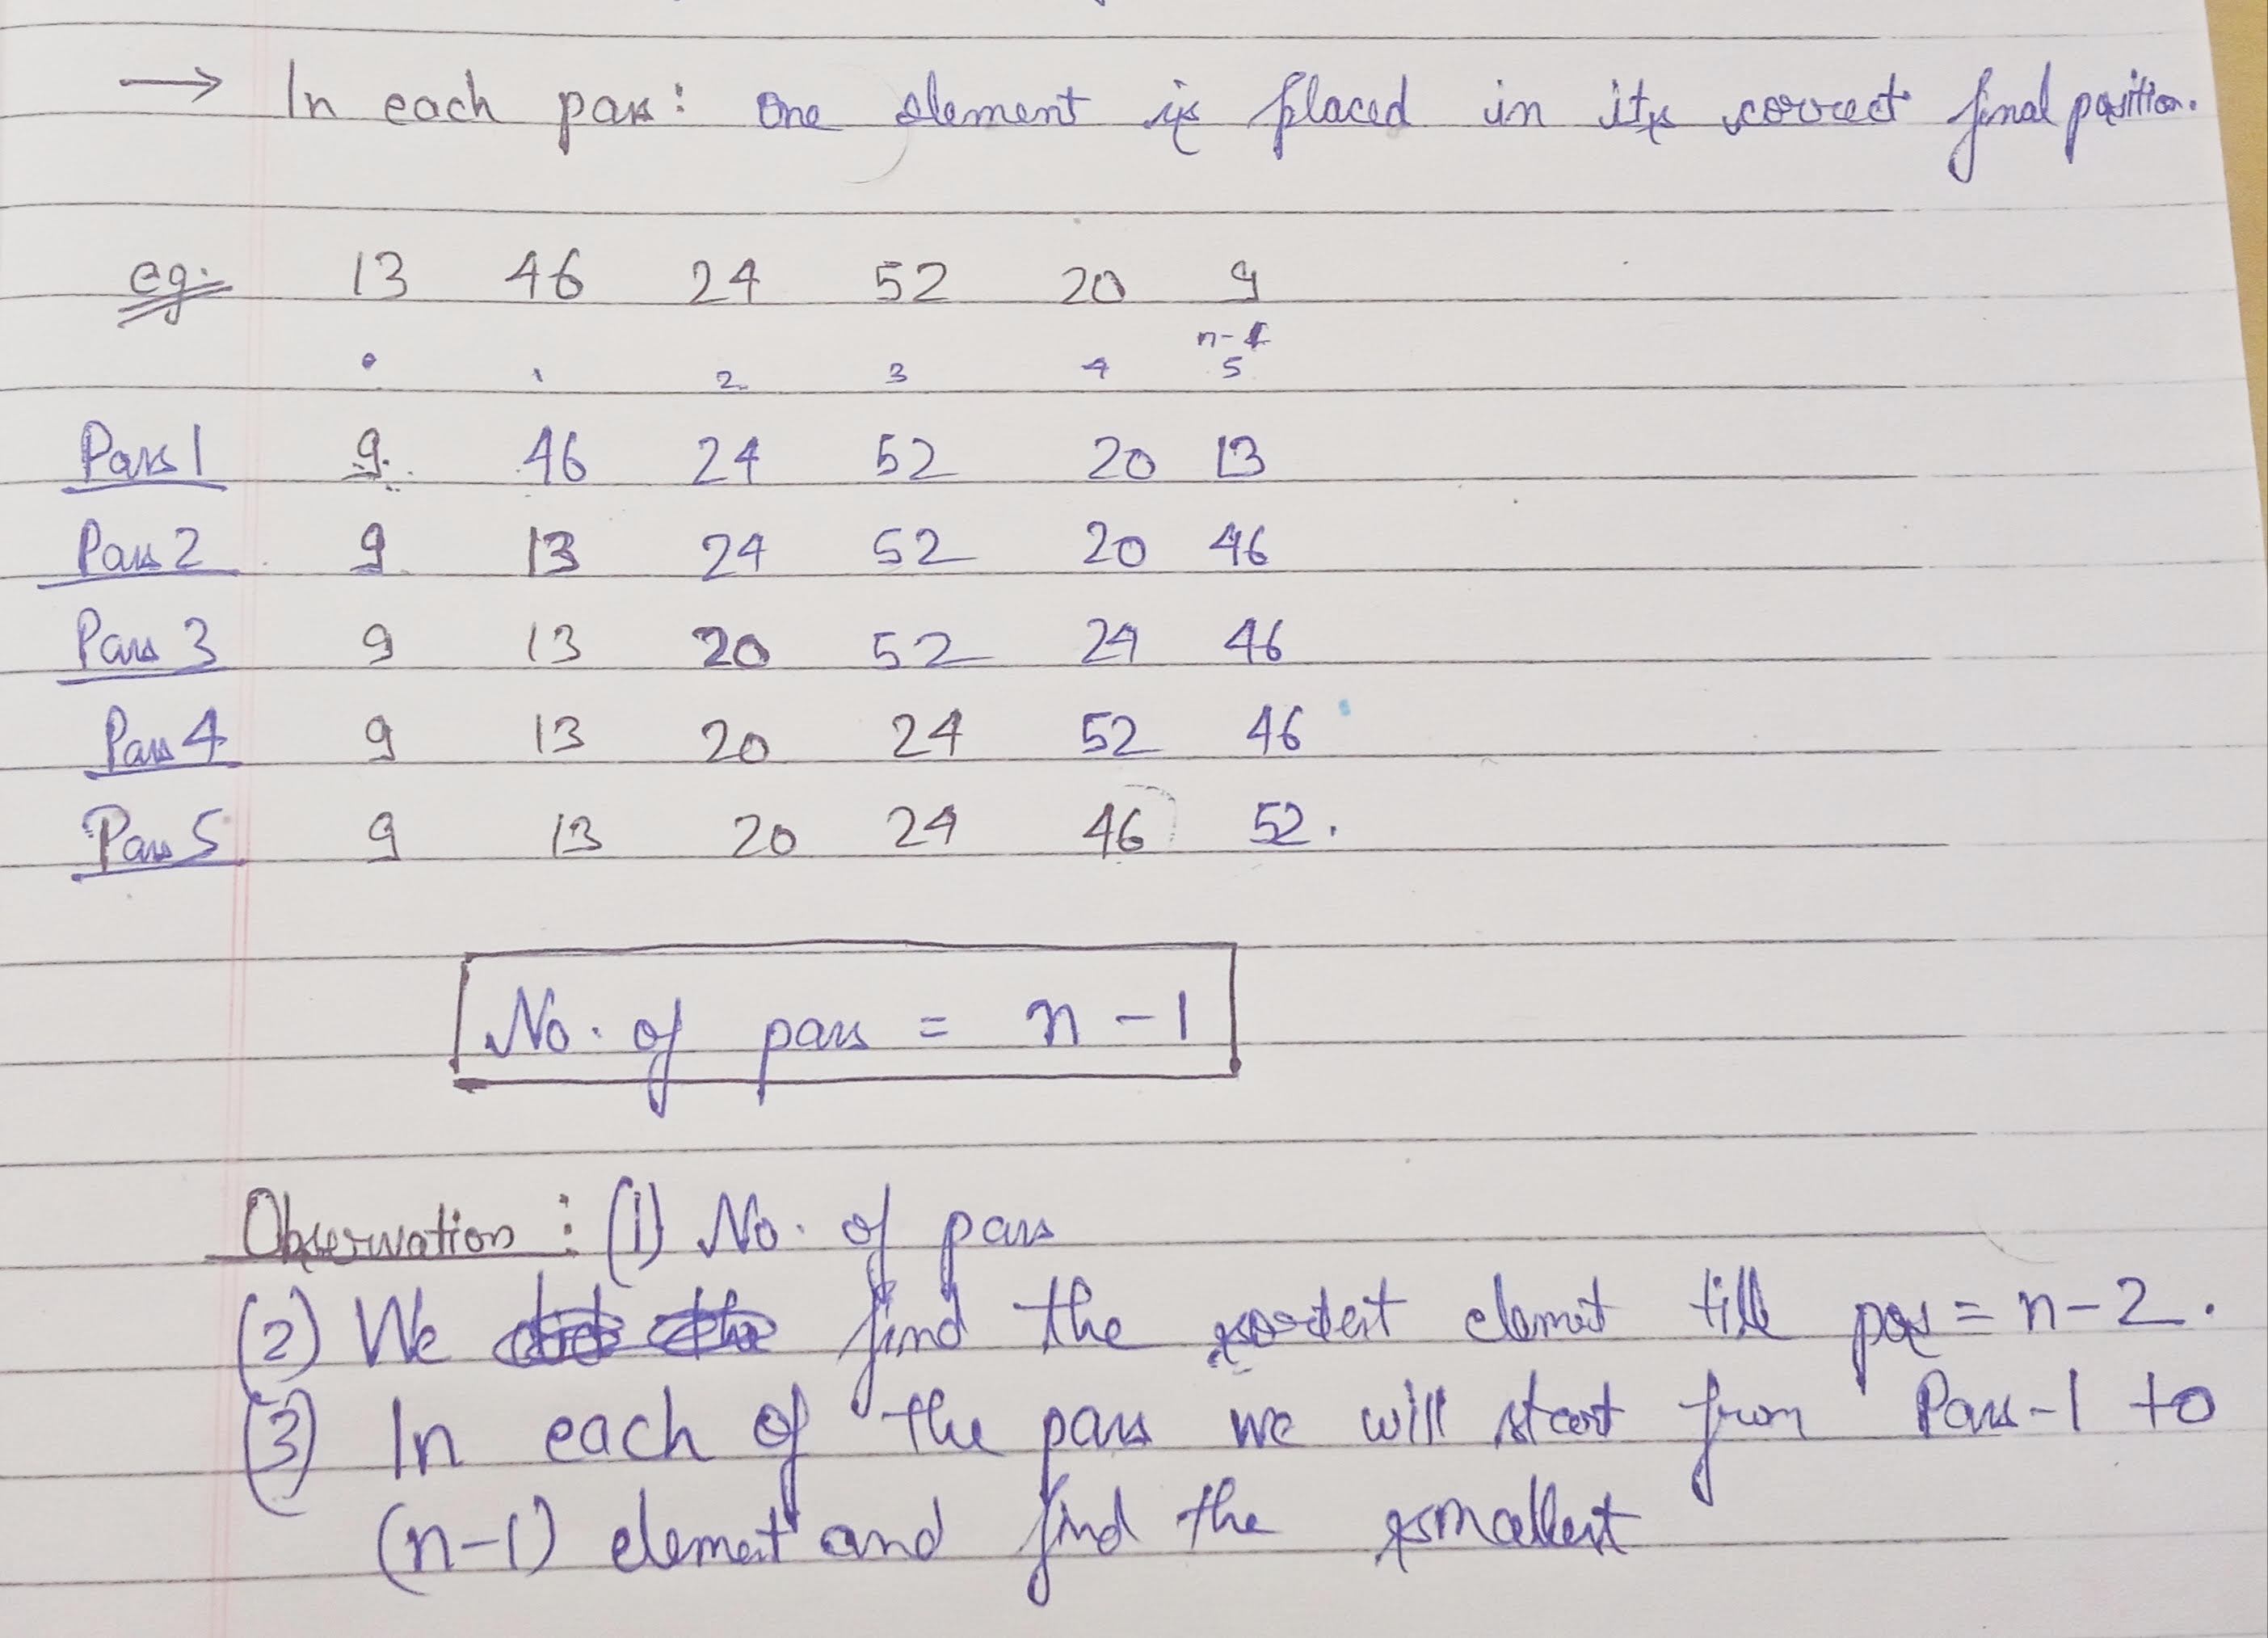 → In each pass: One element is placed in its correct final position.
eg. 13 46 24 52 20 9
n-1
0 1 2 3 4 5
Pass 1 9 46 24 52 20 13
Pass 2 9 13 24 52 20 46
Pass 3 9 13 20 52 24 46
Pass 4 9 13 20 24 52 46
Pass 5 9 13 20 24 46 52.
No. of pass = n - 1
Observation : (1) No. of pass
(2) We find the elemet till pos = n-2.
(3) In each of the pass we will start from Pass-1 to
(n-1) element and find the smallest